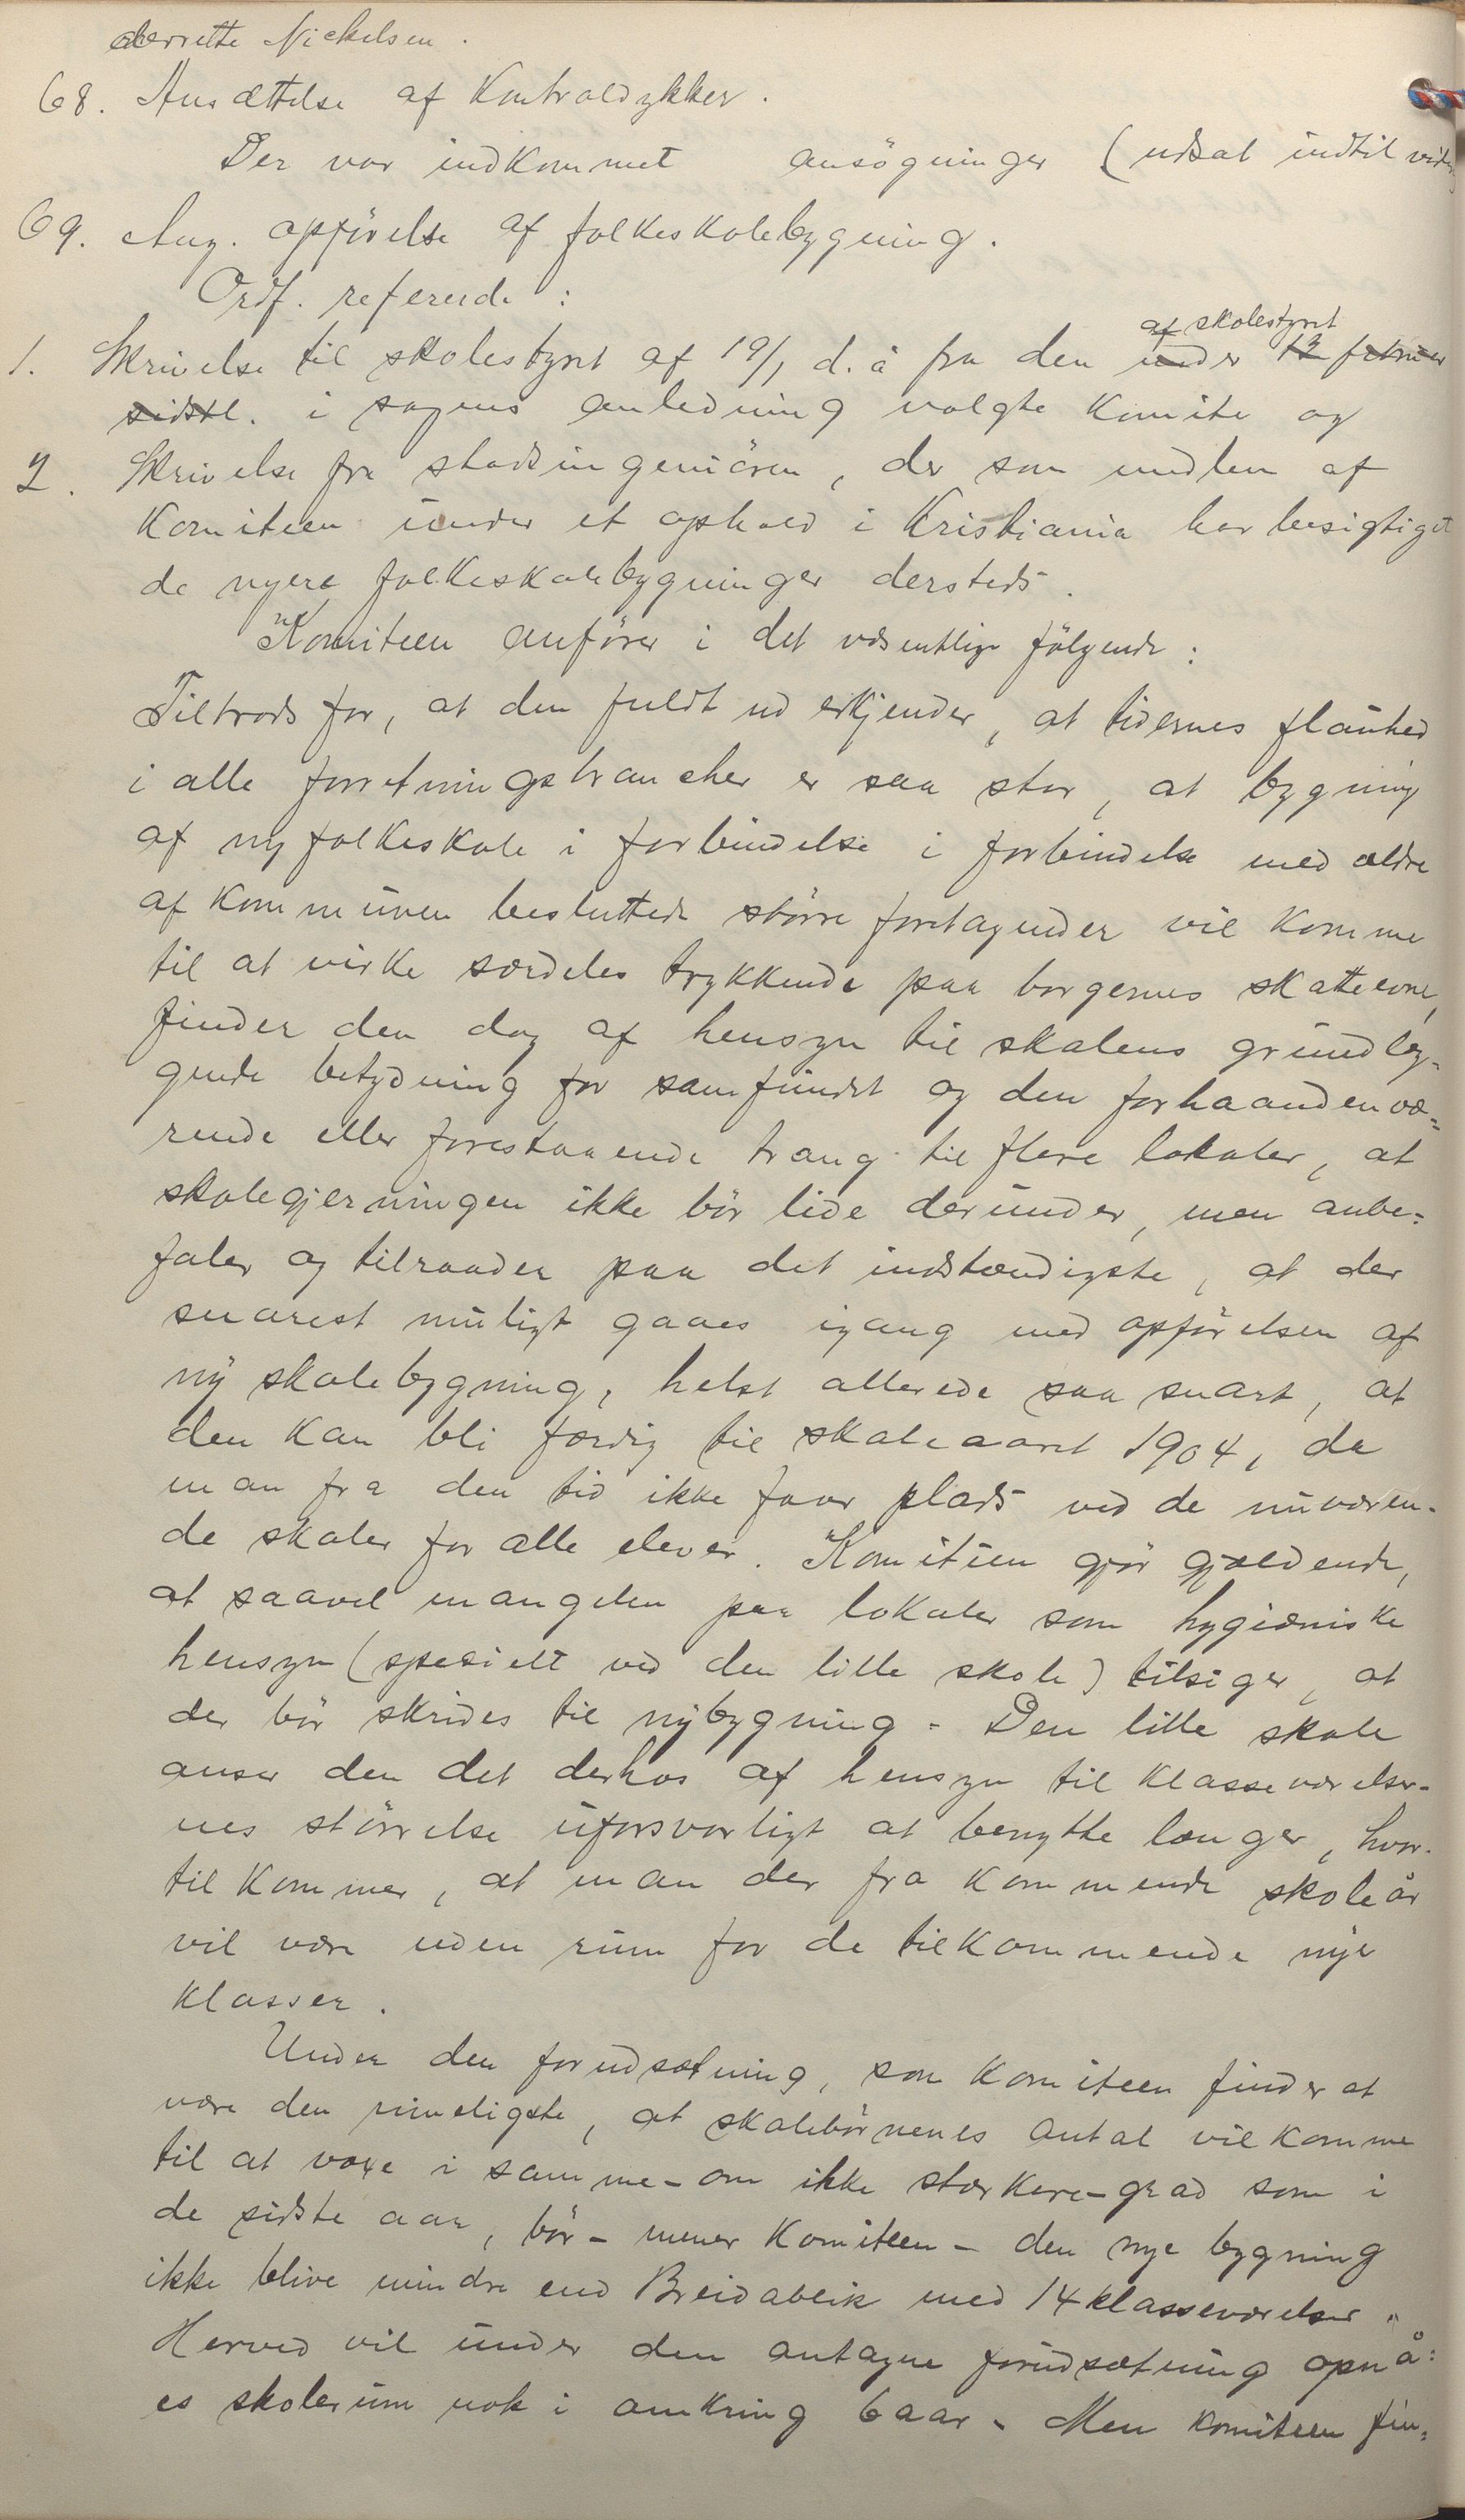 Nickelsen.
68. Ansættelse af Kontroldykker.
Der var indkommet ansögninger (udsat indtil
69. Ang. opförelse af folkeskolebygning.
Ordf. referende:
af skolestyret
1. Skrivelse til skolestyret af 19/1 d. å fra den under 12 februar
sidstl. i sagens anledning valgte Komite og
2. Skrivelse fra stadsingeniören, der som medlem af
Komiteen under et ophold i Kristiania har besigtiget
de nyere folkeskolebygninger dersteds.
"Komiteen anförer i det væsentlige fölgende:
Tiltrods for, at den fuldt ud erkjender, at tidernes flauhed
i alle forretningsbrancher er saa stor, at bygning
af ny folkeskole i forbindelse i forbindelse med ældre
af Kommunen besluttede större foretagender vil komme
til at virke særdeles trykkende paa borgernes skatteevne,
finder den dog af hensyn til skolens grundlæg-
gende betydning for samfundet og den forhaandenvæ=
rende eller forestaaende trang til flere lokaler, at
skolegjerningen ikke bör lide derunder, men anbe=
faler og tilraader paa det indstændigste, at der
snarest muligt gaaes igang med opförelsen af
ny skolebygning, helst allerede saa snart, at
den kan bli færdig til skoleaaret 1904, da
man fra den tid ikke faar plads ved de nuværen-
de skoler for alle elever. "Komiteen gjör gjældende,
at saavel mangelen paa lokaler som hygiæniske
hensyn (specielt ved den lille skole) tilsiger, at
der bör skrides til nybygning. Den lille skole
anser den det derhos af hensyn til klasseværelser-
nes störrelse uforsvarligt at benytte længer, hvor-
til kommer, at man der fra kommende skoleår
vil være uden rum for de tilkommende nye
klasser.
Under den forudsætning, som Komiteen finder at
være den rimeligste, at skolebörnenes antal vil komme
til at voxe i samme - om ikke stærkere - grad som i
de sidste aar, bör - mener Komiteen - den nye bygning
ikke blive mindre end Breidablik med 14 klasseværelser "
Herved vil under den antagne forudsætning opnå=
es skolerum nok i omkring 6 aar. Men komiteen fin=